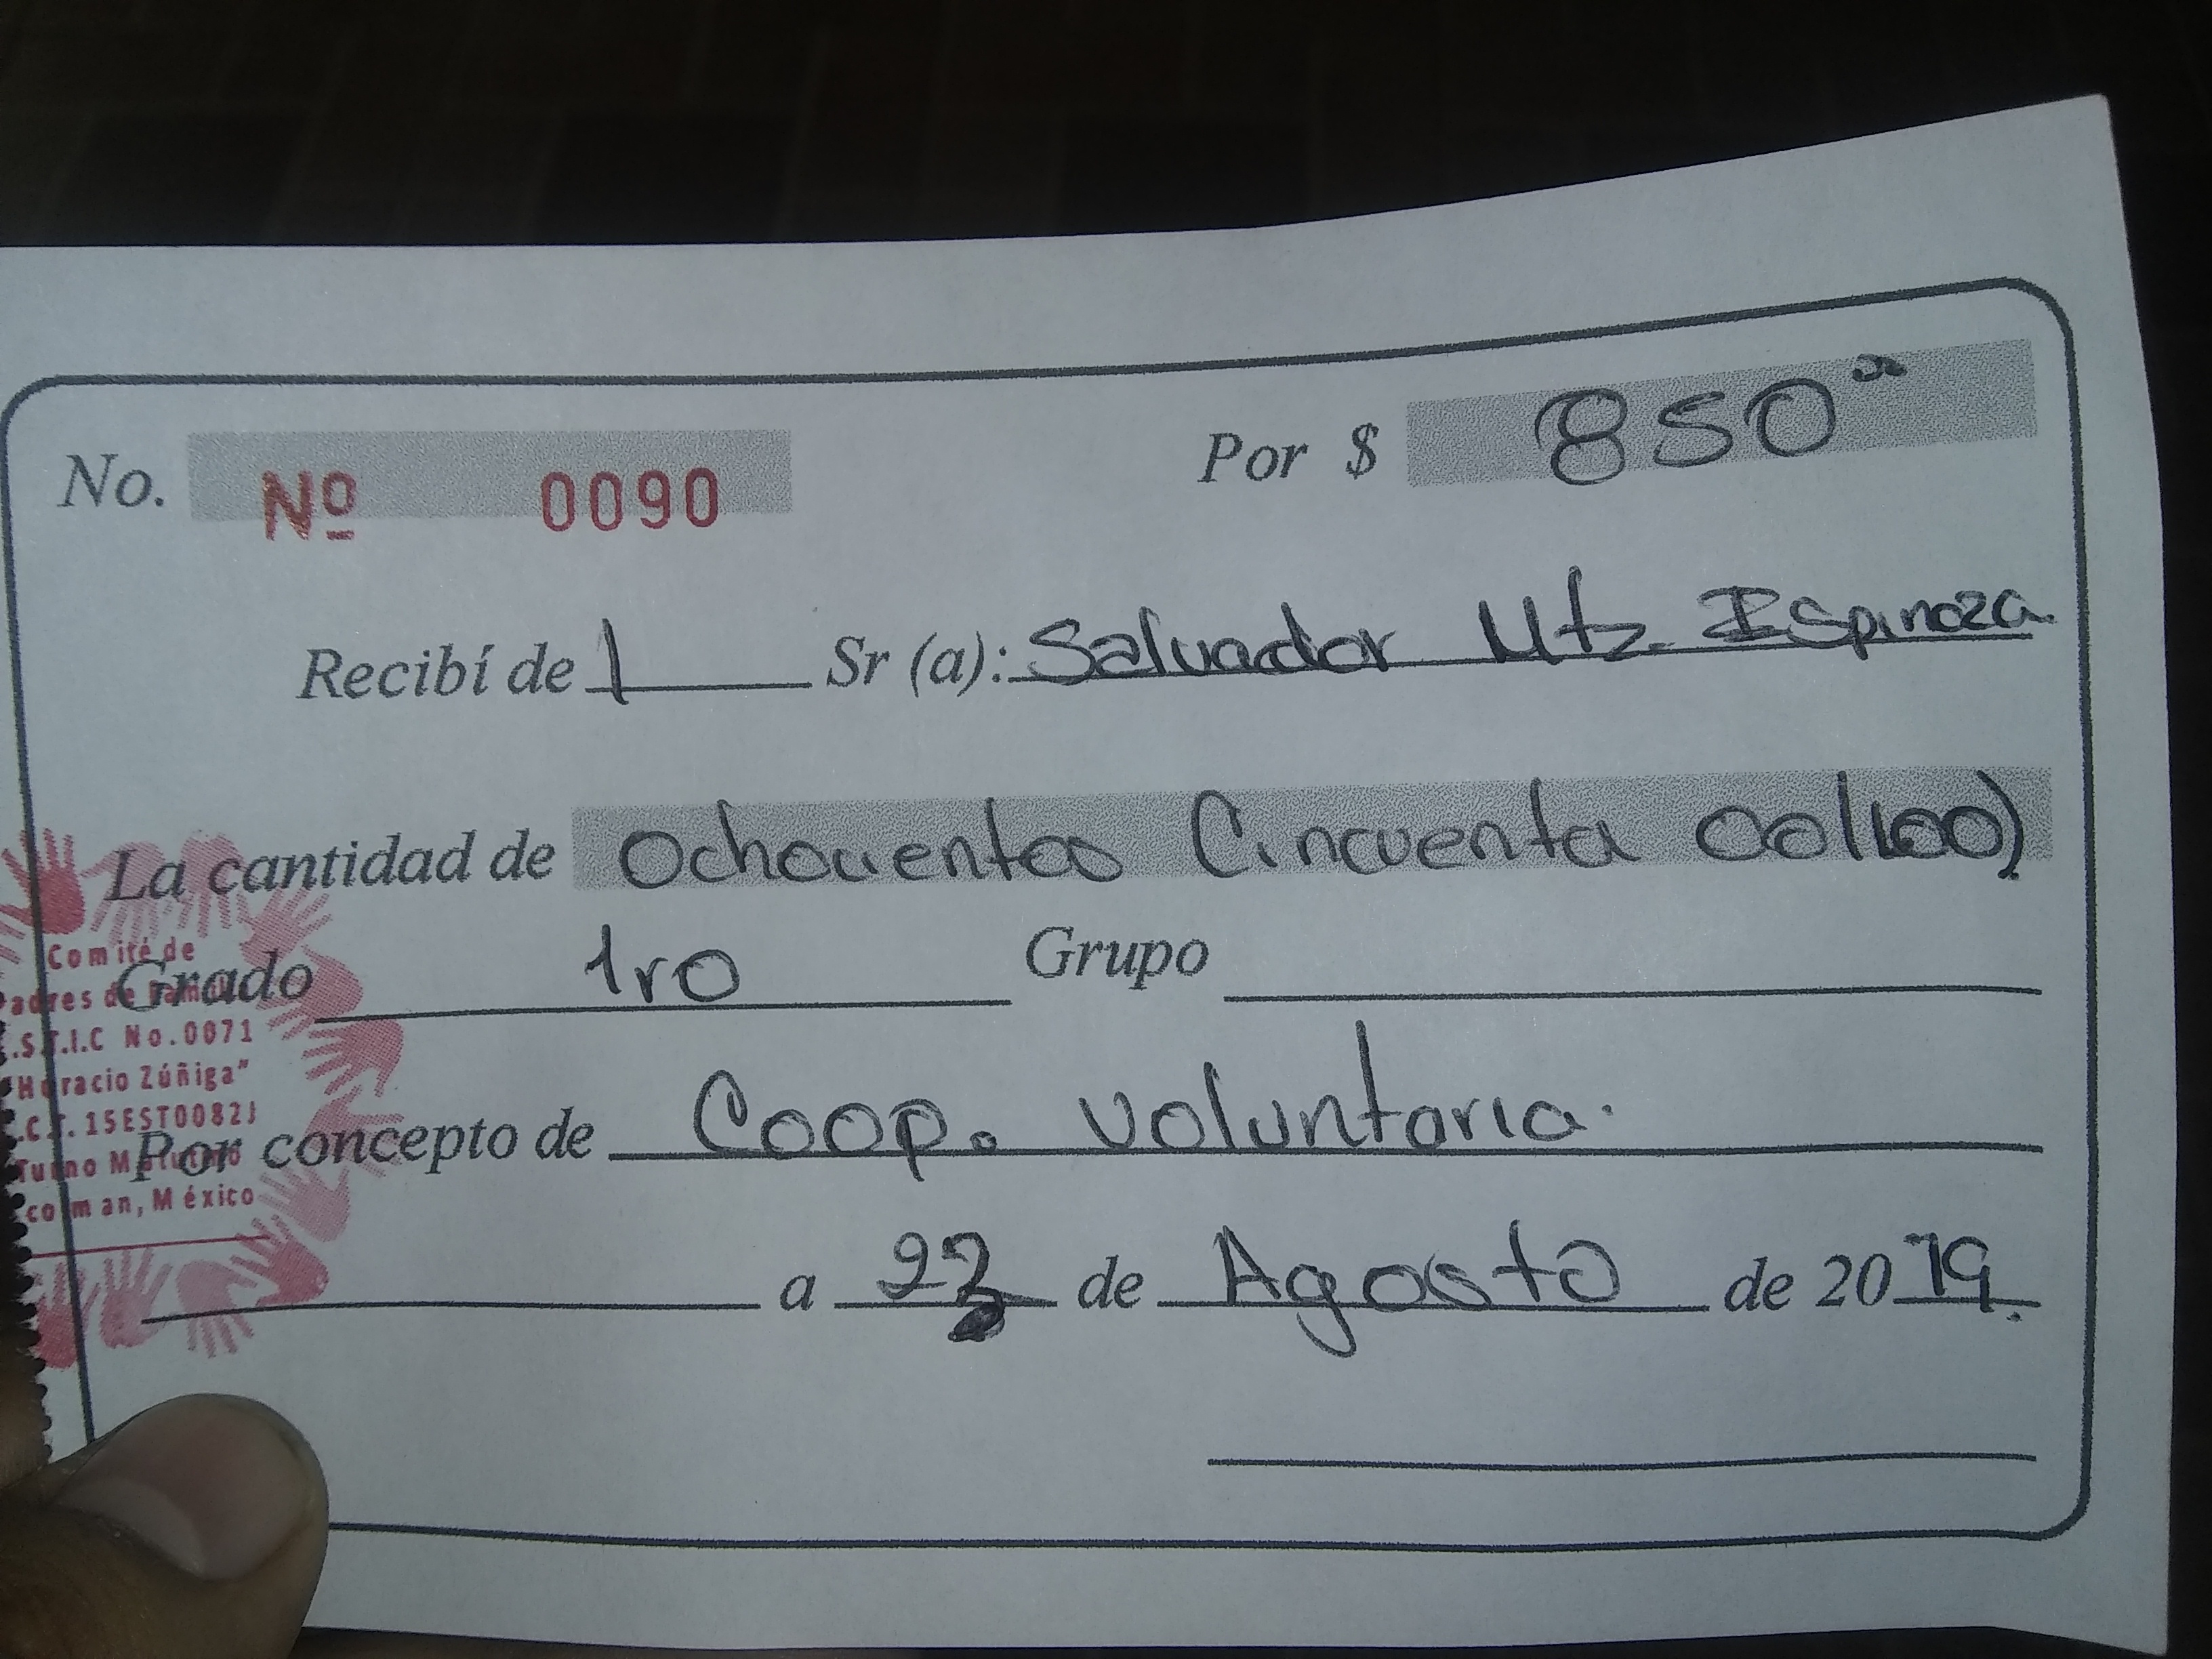 No. Nº 0090 Por $ 850 ºº
Recibí de 1 Sr (a): Salvador Mtz. Espinoza
La cantidad de Ochocientos Cincuenta 00/100)
Grado 1ro Grupo
Por concepto de Coop. voluntaria.
a 23 de Agosto de 2019.
Comité de
adres de Famili
.S.T.I.C No.0071
"Horacio Zúñiga"
.C.T. 15EST0082J
Turno Matutino
colman, México